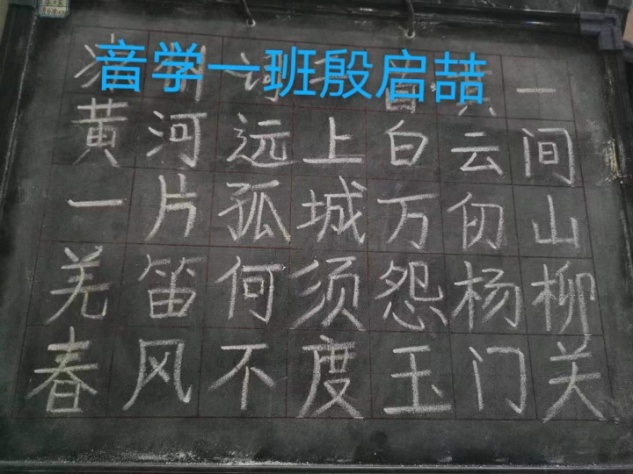 音学一班殷启喆
凉州词二首其一
黄河远上白云间
一片孤城万仞山
羌笛何须怨杨柳
春风不度玉门关